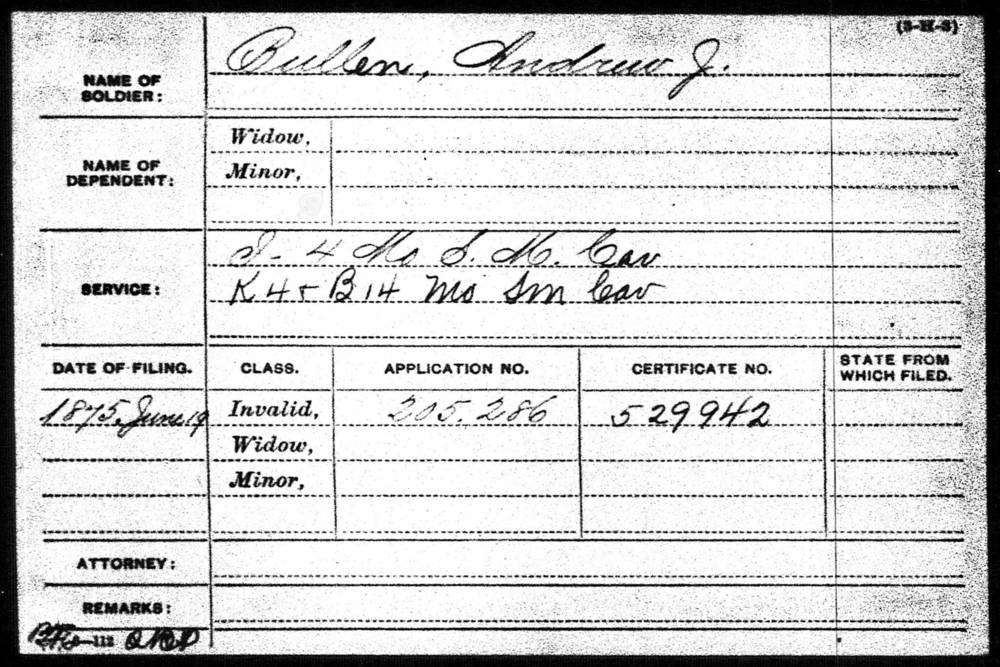 (3-H-3)
NAME OF SOLDIER: Bullen, Andrew J.
NAME OF DEPENDENT: Widow,
Minor,
SERVICE: I - 4 Mo S. M. Cav
K 4 & B 14 Mo Sm Cav
DATE OF FILING. CLASS. APPLICATION NO. CERTIFICATE NO. STATE FROM WHICH FILED.
1875, June 19 Invalid, 205.286 529942
Widow,
Minor,
ATTORNEY:
REMARKS: